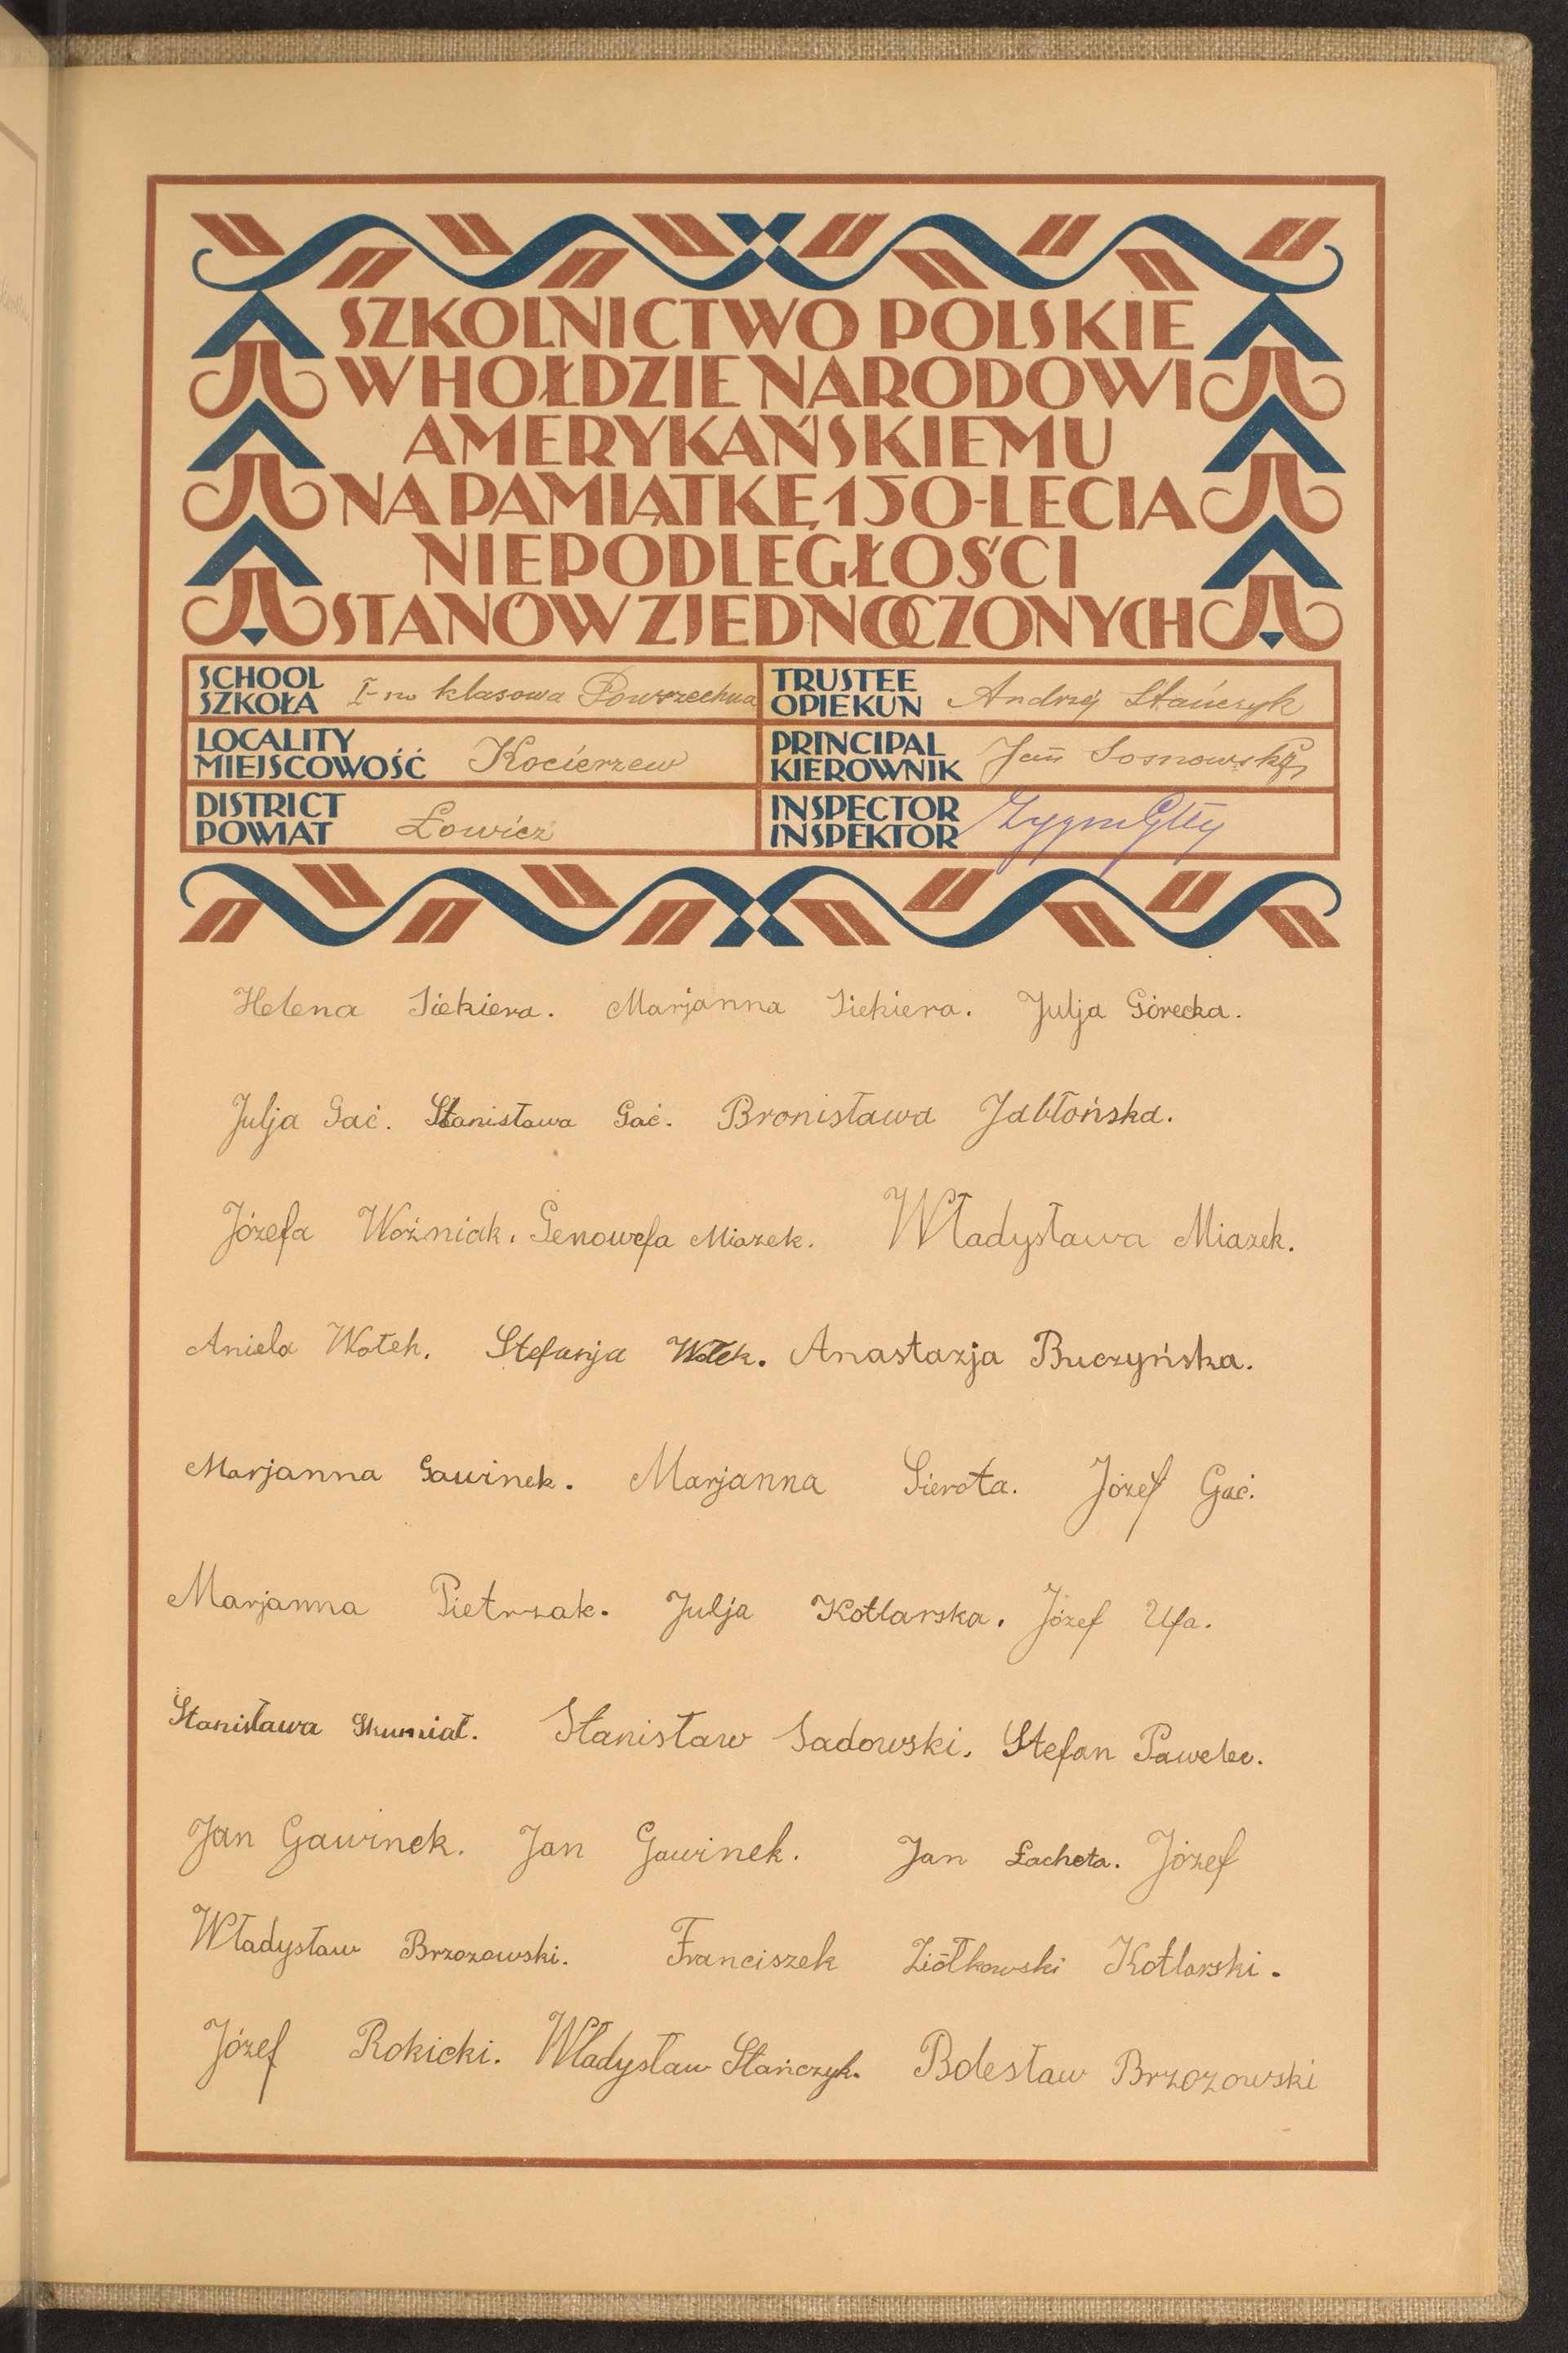 SZKOLNICTWO POLSKIE
W HOŁDZIE NARODOWI
AMERYKAŃSKIEMU
NA PAMIĄTKĘ 150-LECIA
NIEPODLEGŁOŚCI
STANÓW ZJEDNOCZONYCH
SCHOOL
SZKOŁA I-no klasowa Powszechna
TRUSTEE
OPIEKUN Andrzej Stańczyk
LOCALITY
MIEJSCOWOŚĆ Kocierzew
PRINCIPAL
KIEROWNIK Jan Sosnowski
DISTRICT
POWIAT Łowicz
INSPECTOR
INSPEKTOR
Helena Siekiera. Marjanna Siekiera. Julja Górecka.
Julja Gać. Stanisława Gać. Bronisława Jabłońska.
Józefa Woźniak. Genowefa Miazek. Władysława Miazek.
Aniela Wołek. Stefanja Wołek. Anastazja Buczyńska.
Marjanna Gawinek. Marjanna Sierota. Józef Gać.
Marjanna Pietrzak. Julja Kotlarska. Józef Ufa.
Stanisława Skumiał. Stanisław Sadowski. Stefan Pawelec.
Jan Gawinek. Jan Gawinek. Jan Łacheta. Józef
Władysław Brzozowski. Franciszek Ziółkowski Kotlarski.
Józef Rokicki. Władysław Stańczyk. Bolesław Brzozowski